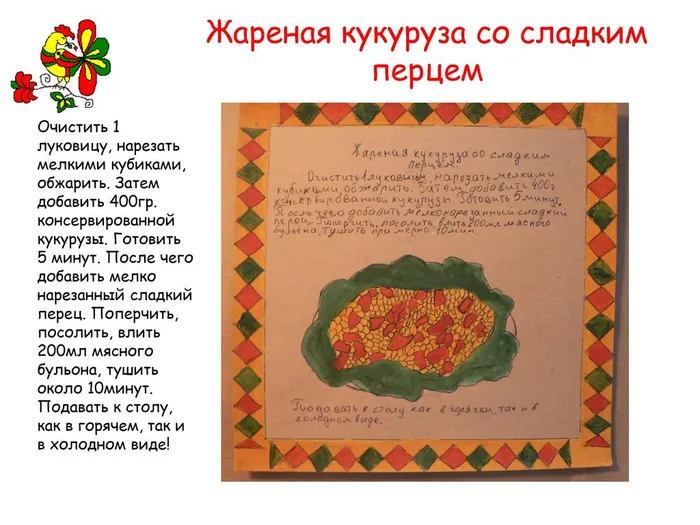 Жареная кукуруза со сладким
перцем
Очистить 1
луковицу, нарезать
мелкими кубиками,
обжарить. Затем
добавить 400гр.
консервированной
кукурузы. Готовить
5 минут. После чего
добавить мелко
нарезанный сладкий
перец. Поперчить,
посолить, влить
200мл мясного
бульона, тушить
около 10минут.
Подавать к столу,
как в горячем, так и
в холодном виде!
Жареная кукуруза со сладким
перцем.
Очистить 1 луковицу, нарезать мелкими
кубиками, обжарить. Затем добавить 400г
консервированной кукурузы. Готовить 5 минут.
После чего добавить мелконарезанный сладкий
перец. Поперчить, посолить, влить 200мл мясного
бульона, тушить примерно 10мин.
Подавать к столу как в горячем, так и в
холодном виде.